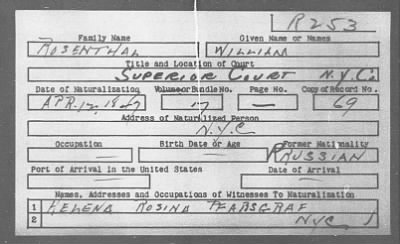 R253
Family Name Given Name or Names
ROSENTHAL WILLIAM
Title and Location of Court
SUPERIOR COURT N.Y.Co
Date of Naturalization Volume or Bundle No. Page No. Copy of Record No.
APR. 12, 1847 17 — 69
Address of Naturalized Person
N.Y.C
Occupation Birth Date or Age Former Nationality
— — PRUSSIAN
Port of Arrival in the United States Date of Arrival
— —
Names, Addresses and Occupations of Witnesses To Naturalization
1 HELENA ROSINA
2 NYC